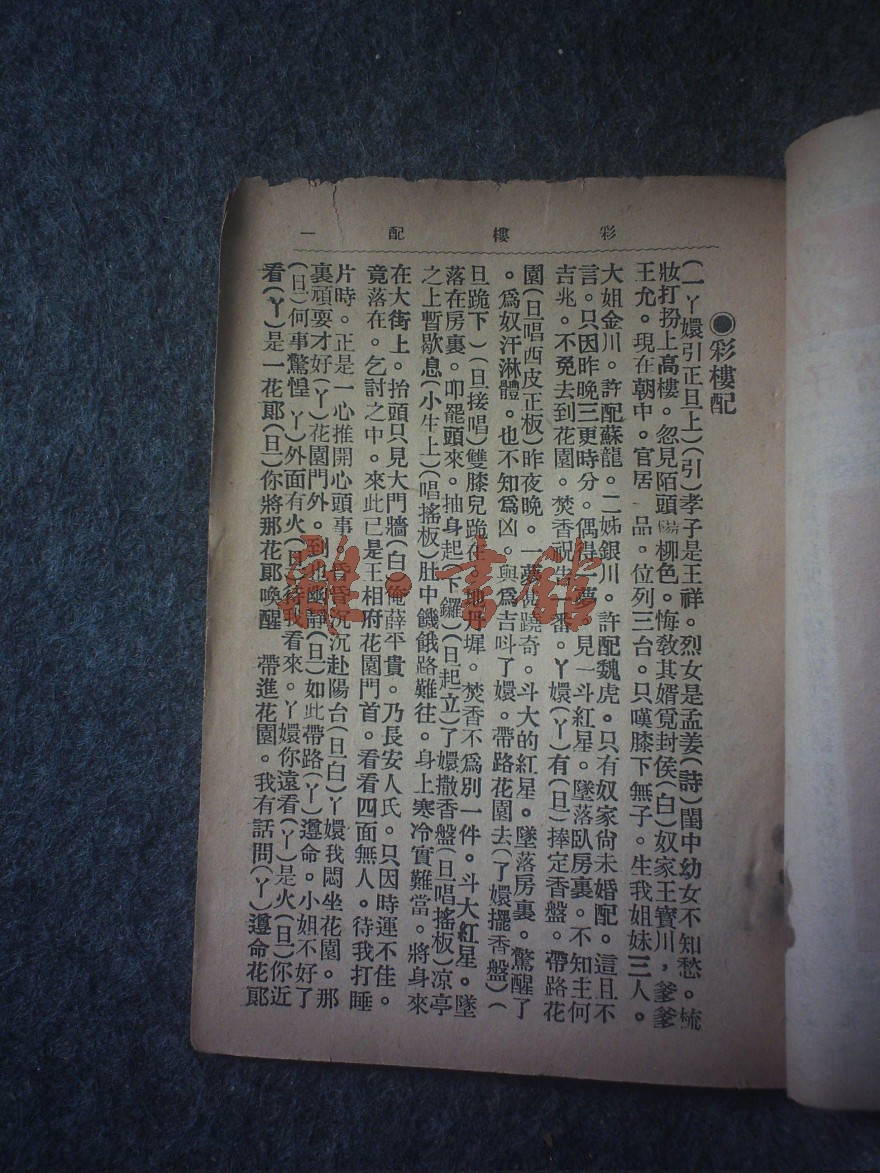 彩樓配 一
◉彩樓配
(一丫嬛引正旦上)(引)孝子是王祥。烈女是孟姜(詩)閨中幼女不知愁。梳
妝打扮上高樓。忽見陌頭楊柳色。悔教其婿覓封侯(白)奴家王寳川，爹爹
王允。現在朝中。官居 品。位列三台。只嘆膝下無子。生我姐妹三人。
大姐金川。許配蘇龍。二姊銀川。許配魏虎。只有奴家尙未婚配。這且不
言。只因昨晚三更時分。偶得一夢。見一斗紅星。墜落臥房裏。不知主何
吉兆。不免去到花園。焚香祝告一番。丫嬛(丫)有(旦)捧定香盤。帶路花
園(旦唱西皮正板)昨夜晚。一夢甚蹺奇。斗大的紅星。墜落房裏。驚醒了
。爲奴汗淋體。也不知爲凶。與爲吉呌了嬛。帶路花園去(了嬛擺香盤)(
旦跪下)(旦接唱)雙膝兒跪在 地牙墀。焚香不爲別一件。斗大紅星。墜
落在房裏。叩罷頭來。抽身起(下鑼)(日起立)了嬛撒香盤(旦唱搖板)凉亭
之上暫歇息(小生上)(唱搖板)肚中饑餓路難往。身上寒冷實難當。將身來
在大街上。抬頭只見大門牆(白)俺薛平貴。乃長安人氏。只因時運不佳。
竟落在。乞討之中。來此已是王相府花園門首。看看四面無人。待我打睡
片時。正是一心推開心頭事 昏昏沉沉赴陽台(旦白)丫嬛我悶坐花園。那
裏頑耍才好(丫)花園門外。到也幽靜(旦)如此帶路(丫)遵命。小姐不好了
(旦)何事驚惶 丫)外面有火(旦)待我看來。丫嬛你遠看(丫)是火(旦)你近
看(丫)是一花郞(旦)你將那花郞喚醒 帶進花園。我有話問(丫)遵命花郞
雅·書館